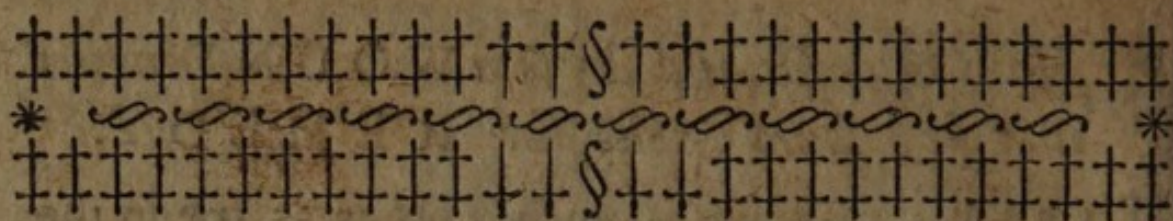 ‡‡‡‡‡‡‡‡‡‡‡††§††‡‡‡‡‡‡‡‡‡‡‡
* §§§§§§§§§§§§ *
‡‡‡‡‡‡‡‡‡‡‡††§††‡‡‡‡‡‡‡‡‡‡‡